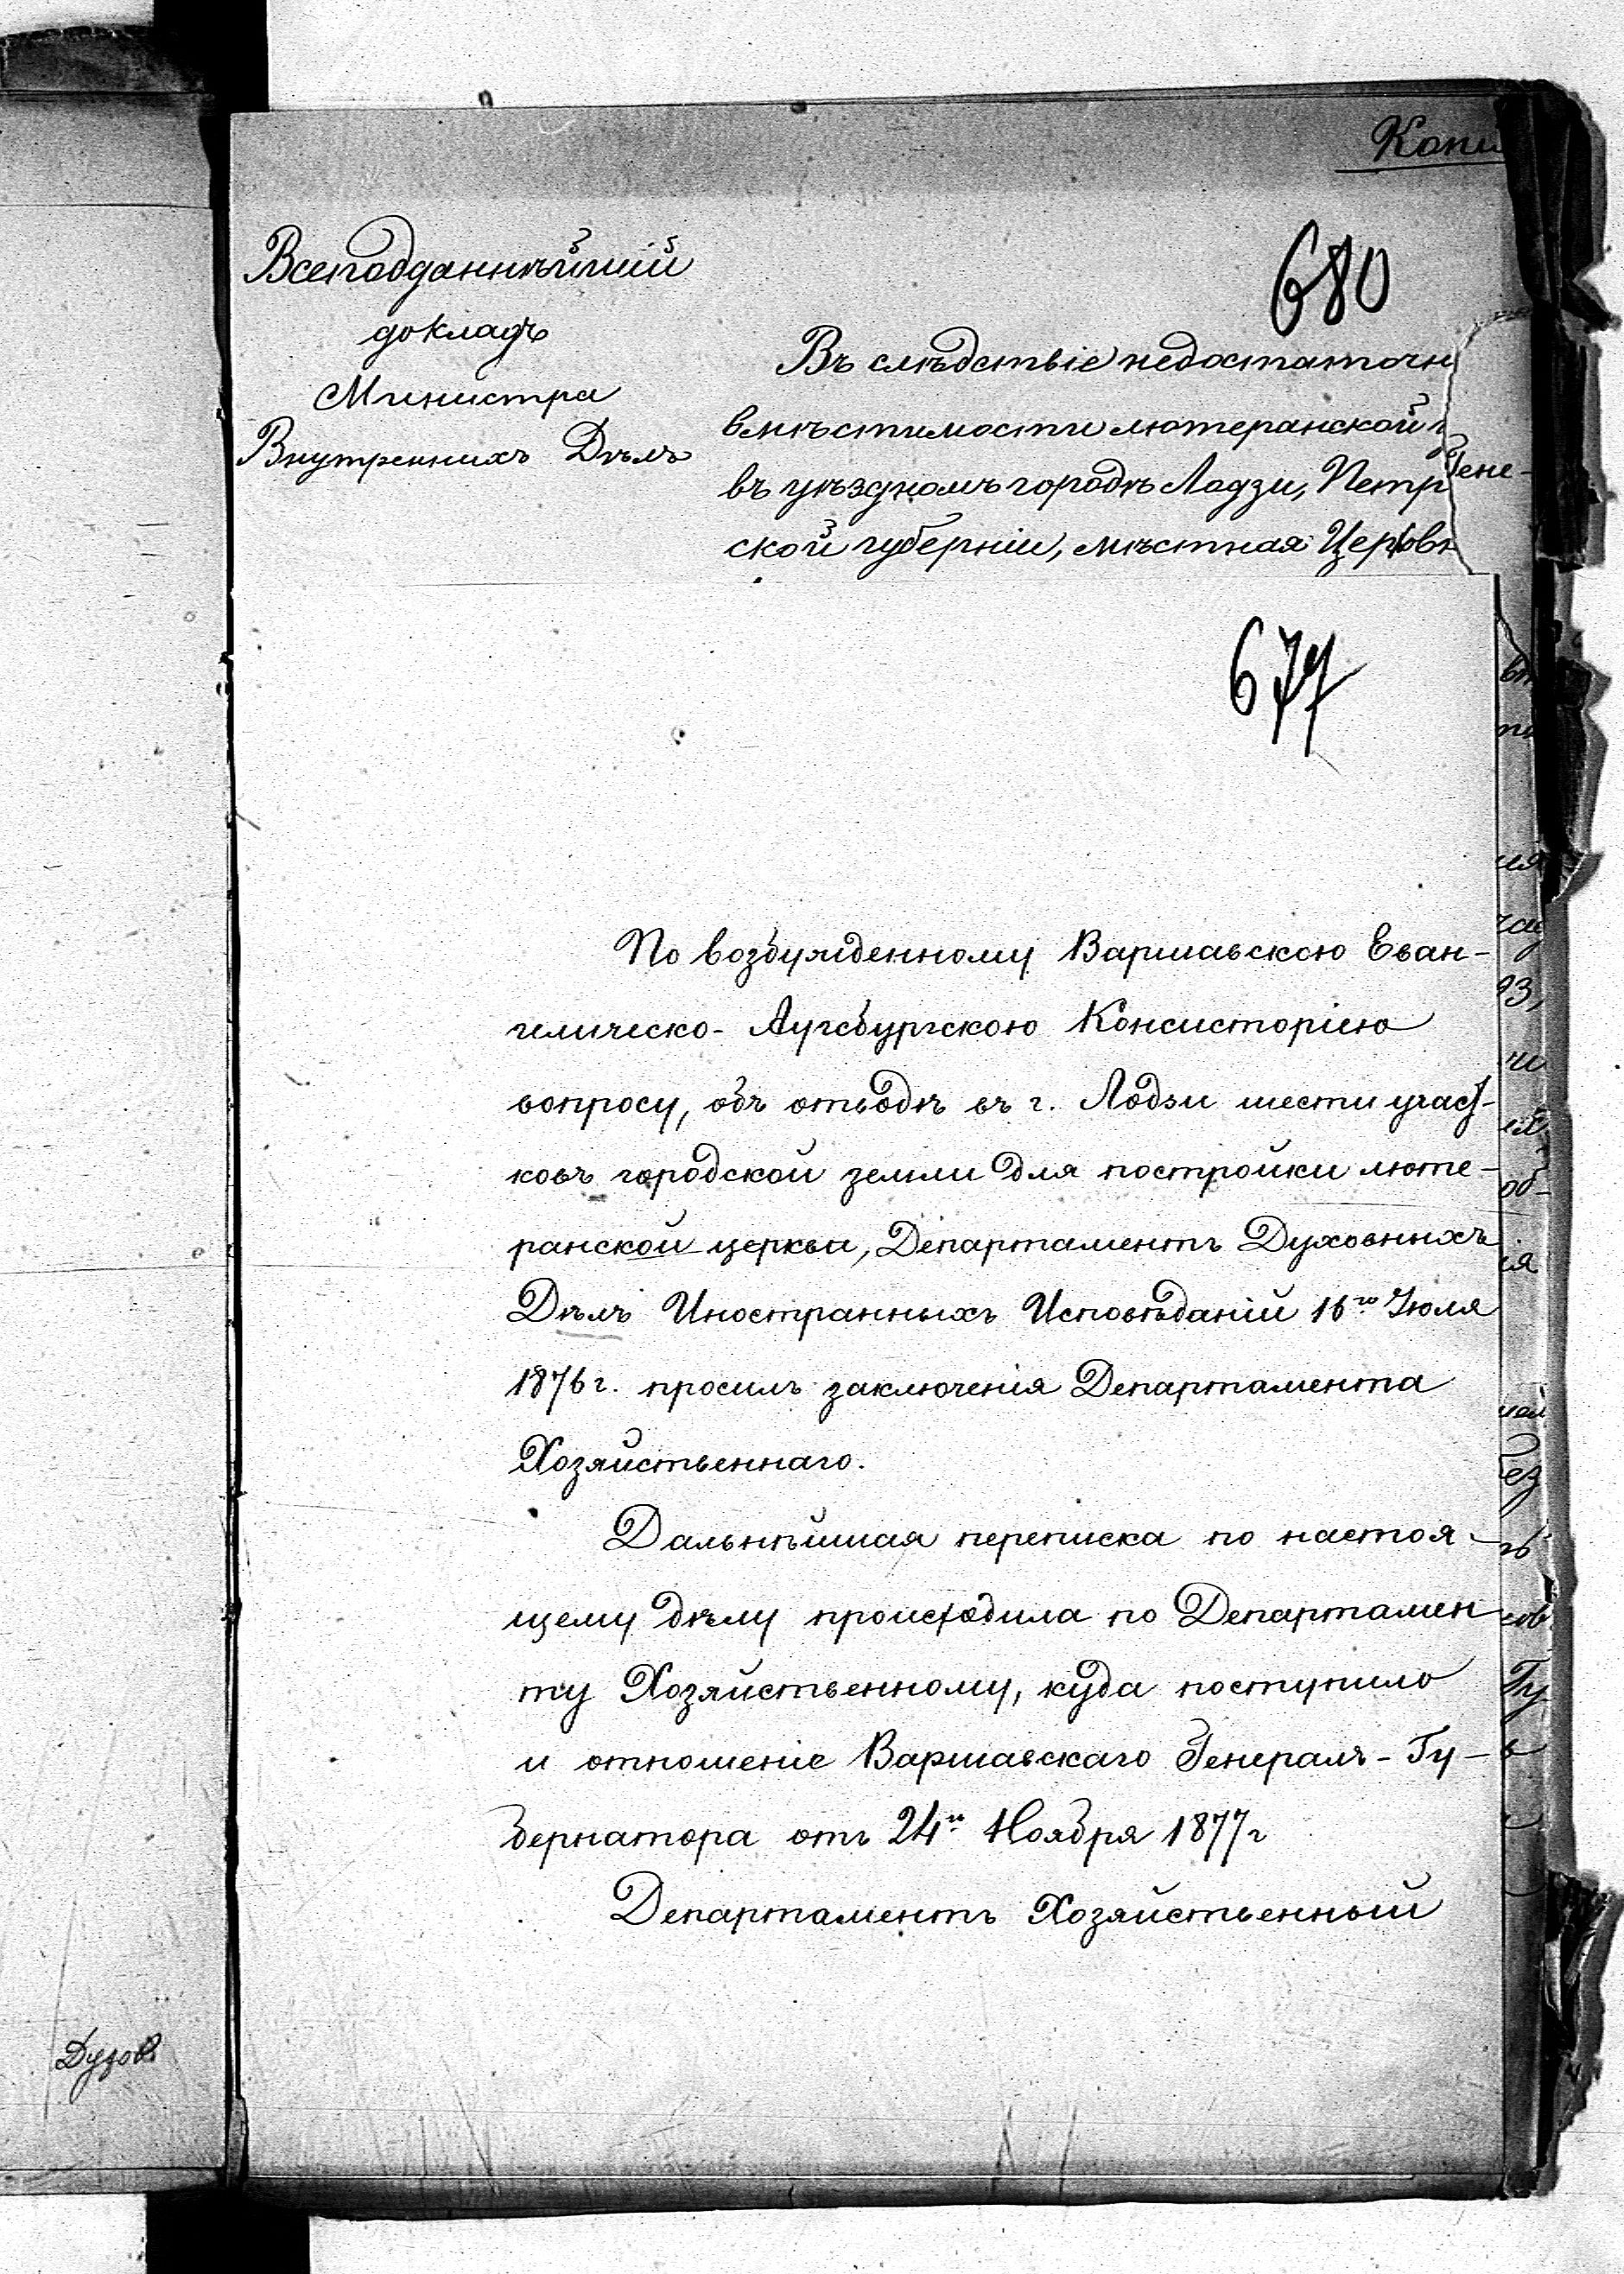 Копи
680
Всеподданнѣйшій
докладъ
Министра
Внутреннихъ Дѣлъ
Въ слѣдствіе недостаточн
вмѣстимости лютеранской
въ уѣздномъ городѣ Лодзи, Петр
ской губерніи, мѣстная Церковн
Гене-
677
По возбужденному Варшавскою Еван-
гелическо-Аугсбургскою Консисторіею
вопросу, объ отводѣ въ г. Лодзи шести участ-
ковъ городской земли для постройки люте-
ранской церкви, Департаментъ Духовныхъ
Дѣлъ Иностранныхъ Исповѣданій 16го Іюля
1876 г. просилъ заключенія Департамента
Хозяйственнаго.
Дальнѣйшая переписка по настоя-
щему дѣлу происходила по Департамен
ту Хозяйственному, куда поступило
и отношеніе Варшавскаго Генералъ-Гу-
бернатора отъ 24го Ноября 1877 г
Департаментъ Хозяйственный
об-
ія
без
Гу